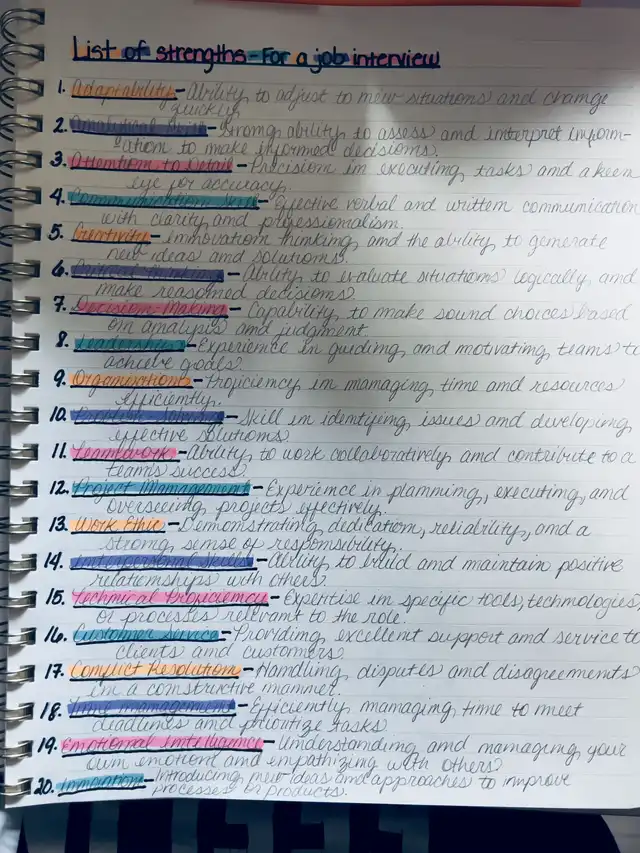 List of strengths-For a job interview
1. Adaptability-Ability to adjust to new situations and change
quickly
2. Analytical Skills-Strong ability to assess and interpret inform-
ation to make informed decisions.
3. Attention to Detail-Precision in executing tasks and a keen
eye for accuracy.
4. Communication Skill-Effective verbal and written communication
with clarity and professionalism.
5. Creativity-Innovation thinking, and the ability to generate
new ideas and solutions.
6. Critical thinking-Ability to evaluate situations logically, and
make reasoned decisions.
7. Decision-Making-Capability to make sound choices based
on analysis and judgment
8. Leadership-Experience in guiding and motivating teams to
achieve goals.
9. Organization-Proficiency in managing time and resources
efficiently.
10. Problem Solving-Skill in identifying issues and developing
effective solutions
11. Teamwork-Ability to work collaboratively and contribute to a
team's success.
12. Project Management-Experience in planning, executing, and
overseeing projects effectively.
13. Work Ethic-Demonstrating dedication, reliability, and a
strong sense of responsibility.
14. Interpersonal Skills-Ability to build and maintain positive
relationships with others.
15. Technical Proficiency-Expertise in specific tools, technologies,
or processes relevant to the role.
16. Customer Service-Providing excellent support and service to
clients and customers.
17. Conflict Resolution-Handling disputes and disagreements
in a constructive manner.
18. Time management-Efficiently managing time to meet
deadlines and prioritize tasks
19. Emotional Intelligence-Understanding and managing your
own emotions and empathizing with others
20. Innovation-Introducing new ideas and approaches to improve
processes or products.